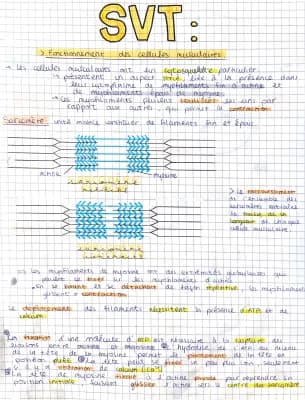 SVT:
> Fonctionnement des cellules musculaires
→ Les cellules musculaires ont un cytosquelette particulier.
→ présentent un aspect strié, liée à la présence dans
leur cytoplasme de myofilaments fin d'actine et
de myofilaments épais de myosine.
→ Les myofilaments peuvent coulisser les uns par
rapport aux autres, qui permet la contraction
Sarcomère: unité motrice constituer de filaments fin et épais.
actine
myosine
sarcomère relâché
> Le raccourcissement
de l'ensemble des
sarcomères entraîne
la baisse de la
longueur de chaque
cellule musculaire.
sarcomère contracté
→ Les myofilaments de myosine ont des extrémités globulaires qui
peuvent se fixer sur les myofilaments d'actine.
→ en se liant et se détachant de façon répétitive, les myofilaments
glissent = contraction
Le déplacement des filaments nécessitent la présence d'ATP et de
calcium.
La fixation d'une molécule d'ATP est nécessaire à la rupture des
liaisons entre actine et myosine. L'hydrolyse de l'ATP au niveau
de la tête de la myosine permet le pivotement de la tête en
position pliée. La tête peut se fixer un peu plus loin seulement
s'il y a libération de calcium (Ca²⁺).
La tête de myosine fixée à l'actine pivote pour reprendre sa
position initiale, faisant glisser l'actine vers le centre du sarcomère.